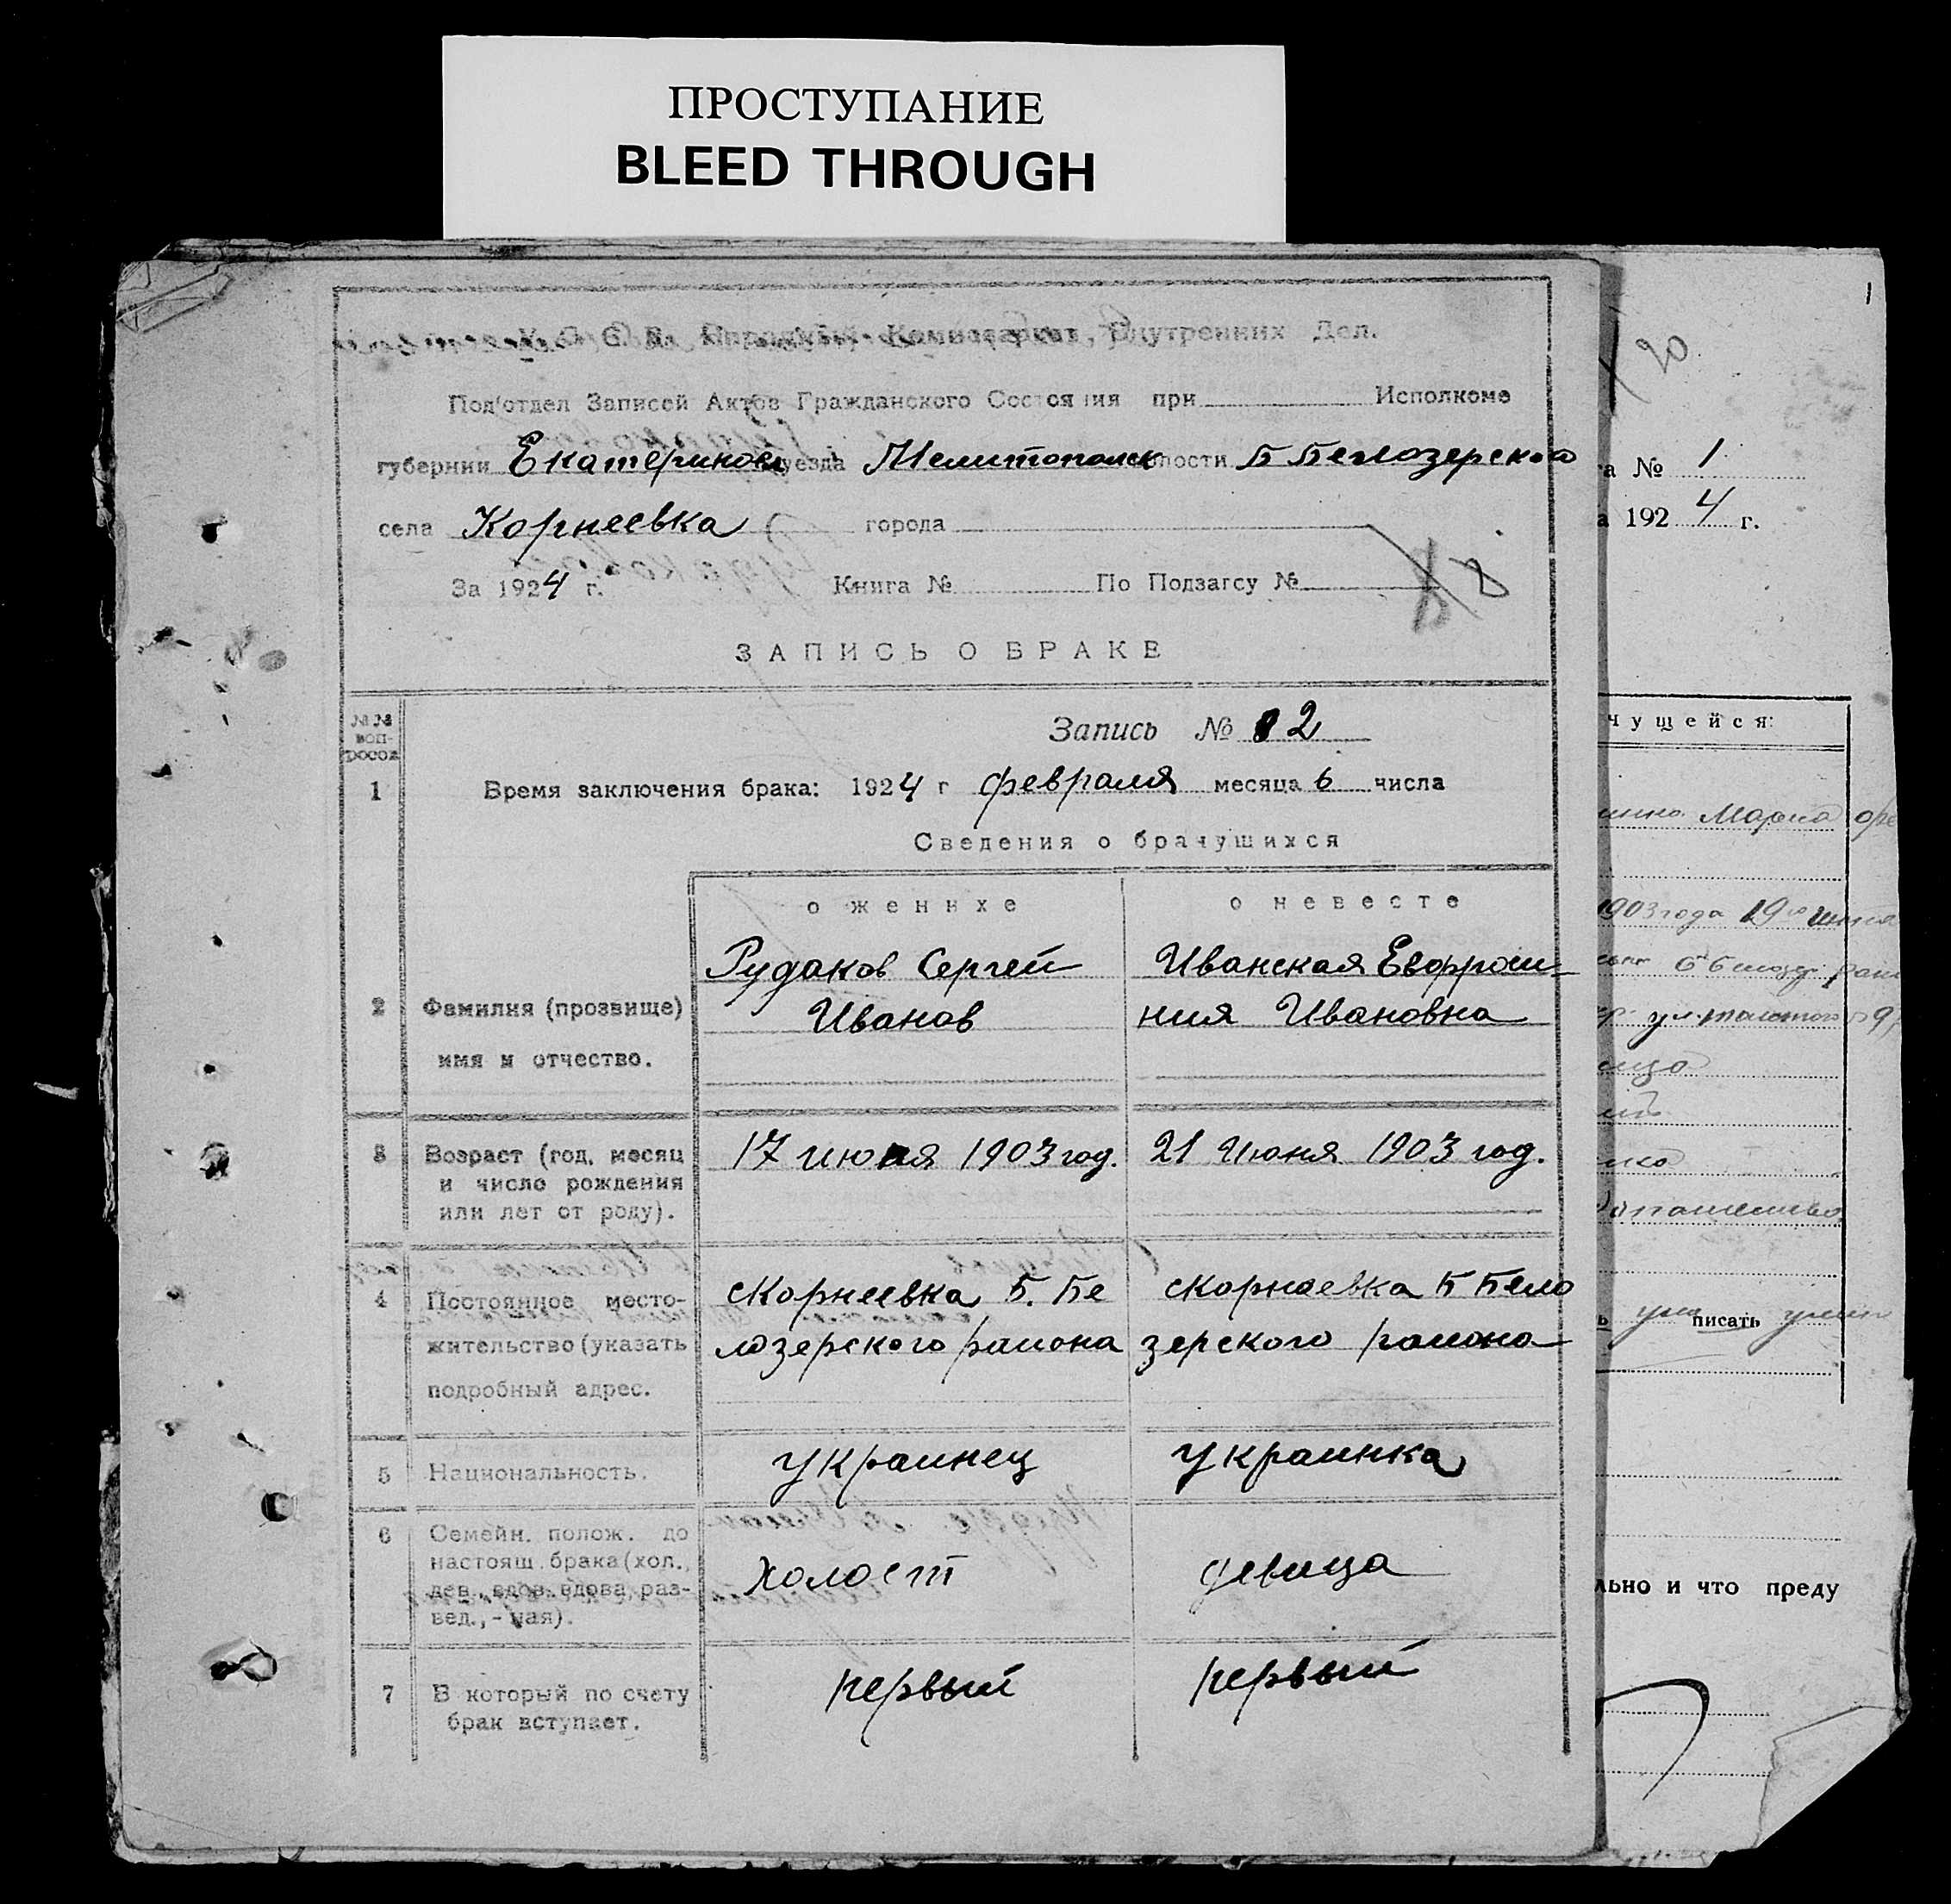 ПРОСТУПАНИЕ
BLEED THROUGH
У. С. С. Р. Народный Комиссариат Внутренних Дел.
Под'отдел Записей Актов Гражданского Состояния при Исполкоме
губернии Екатеринос уезда Мелитопольск волости Б Белозерской
села Корнеевка города
За 1924 г. Книга № По Подзагсу №
18
ЗАПИСЬ О БРАКЕ
№№ воп-
росов
Запись № 2
1 Время заключения брака: 1924 г февраля месяца 6 числа
Сведения о брачущихся
о женихе о невесте
Рудаков Сергей Иванская Евфроси-
2 Фамилия (прозвище) Иванов ния Ивановна
имя и отчество.
3 Возраст (год, месяц 17 июля 1903 год. 21 Июня 1903 год.
и число рождения
или лет от роду).
4 Постоянное место- с Корнеевка Б. Бе с Корнеевка Б Бело
жительство (указать лозерского района зерского района
подробный адрес.
5 Национальность. украинец украинка
6 Семейн. полож. до
настоящ. брака (хол., холост девица
дев., вдов. вдова, раз-
вед., -ная).
7 В который по счету первый первый
брак вступает.
1
20
а № 1
а 1924 г.
чущейся:
Мария
1903 года 19го
ица
писать
льно и что преду